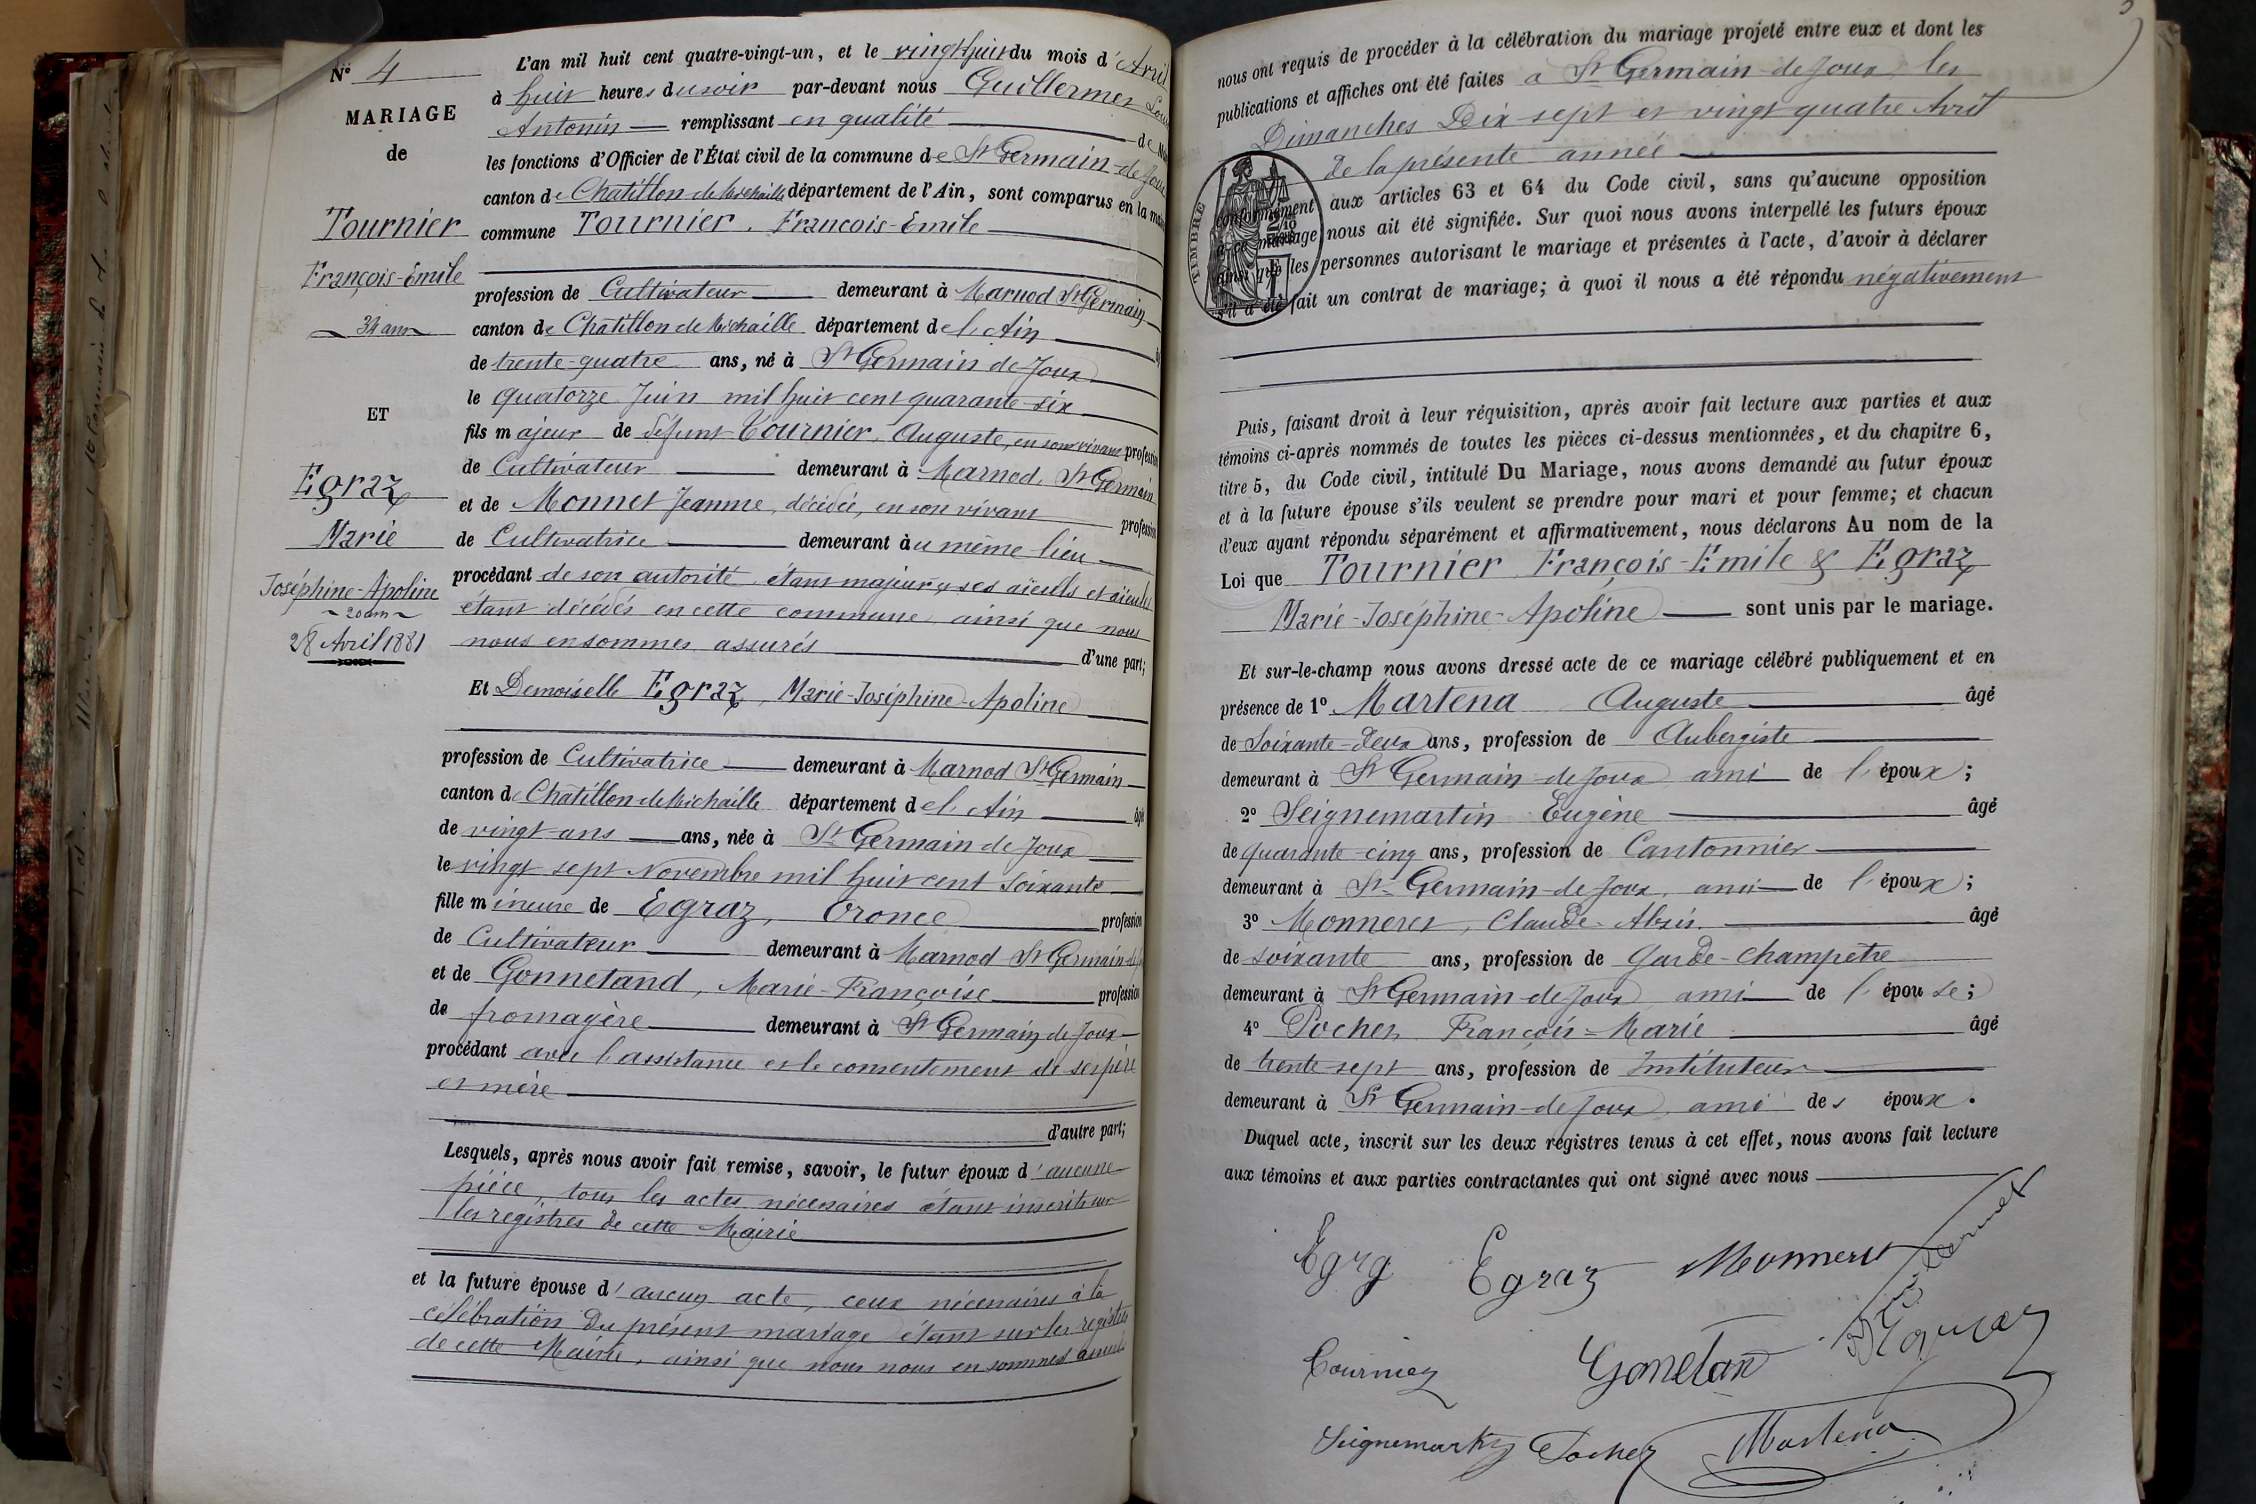 N° 4
MARIAGE
de
Tournier
François-Emile
34 ans
ET
Egraz
Marie
Joséphine-Apoline
20 ans
28 Avril 1881
L'an mil huit cent quatre-vingt-un, et le vingt-huit du mois d'Avril
à huit heures du soir par-devant nous Guillermet Louis
Antonin remplissant en qualité de
les fonctions d'Officier de l'État civil de la commune de St Germain-de-Joux
canton de Chatillon de Michaille département de l'Ain, sont comparus en la
commune Tournier, François-Emile
profession de Cultivateur demeurant à Marnod St Germain
canton de Chatillon de Michaille département de l'Ain
de trente-quatre ans, né à St Germain de Joux
le quatorze Juin mil huit cent quarante-six
fils majeur de défunt Tournier, Auguste, en son vivant profession
de Cultivateur demeurant à Marnod, St Germain
et de Monnet Jeanne, décédée, en son vivant profession
de Cultivatrice demeurant au même lieu
procédant de son autorité, étant majeur, ses aïeuls et aïeules
étant décédés en cette commune, ainsi que nous
nous en sommes assurés d'une part;
Et Demoiselle Egraz, Marie-Joséphine-Apoline
profession de Cultivatrice demeurant à Marnod St Germain
canton de Chatillon de Michaille département de l'Ain âgé
de vingt ans ans, née à St Germain de Joux
le vingt sept Novembre mil huit cent soixante
fille mineure de Egraz, Oronce profession
de Cultivateur demeurant à Marnod St Germain-de-
et de Gonnetand, Marie-Françoise profession
de fromagère demeurant à St Germain de Joux
procédant avec l'assistance et le consentement de ses père
et mère
d'autre part;
Lesquels, après nous avoir fait remise, savoir, le futur époux d'aucune
pièce, tous les actes nécessaires étant inscrits sur
les registres de cette Mairie
et la future épouse d'aucun acte, ceux nécessaires à la
célébration du présent mariage étant sur les registres
de cette Mairie, ainsi que nous nous en sommes assurés
nous ont requis de procéder à la célébration du mariage projeté entre eux et dont les
publications et affiches ont été faites à St Germain-de-Joux, les
Dimanches Dix-sept et vingt-quatre Avril
de la présente année
conformément aux articles 63 et 64 du Code civil, sans qu'aucune opposition
à ce mariage nous ait été signifiée. Sur quoi nous avons interpellé les futurs époux
ainsi que les personnes autorisant le mariage et présentes à l'acte, d'avoir à déclarer
s'il a été fait un contrat de mariage; à quoi il nous a été répondu négativement
TIMBRE
Puis, faisant droit à leur réquisition, après avoir fait lecture aux parties et aux
témoins ci-après nommés de toutes les pièces ci-dessus mentionnées, et du chapitre 6,
titre 5, du Code civil, intitulé Du Mariage, nous avons demandé au futur époux
et à la future épouse s'ils veulent se prendre pour mari et pour femme; et chacun
d'eux ayant répondu séparément et affirmativement, nous déclarons Au nom de la
Loi que Tournier François-Emile & Egraz
Marie-Joséphine-Apoline sont unis par le mariage.
Et sur-le-champ nous avons dressé acte de ce mariage célébré publiquement et en
présence de 1° Martena Auguste âgé
de Soixante-deux ans, profession de Aubergiste
demeurant à St Germain-de-Joux ami de l'époux;
2° Seignemartin Eugène âgé
de quarante-cinq ans, profession de Cantonnier
demeurant à St Germain-de-Joux, ami de l'époux;
3° Monneret, Claude-Alexis âgé
de soixante ans, profession de Garde-Champetre
demeurant à St Germain-de-Joux ami de l'épouse;
4° Pochet François-Marie âgé
de trente-sept ans, profession de Instituteur
demeurant à St Germain-de-Joux, ami des époux.
Duquel acte, inscrit sur les deux registres tenus à cet effet, nous avons fait lecture
aux témoins et aux parties contractantes qui ont signé avec nous
Egrg Egraz Monneret
Tournier Gonetan
Seignemartin Pochet Martena